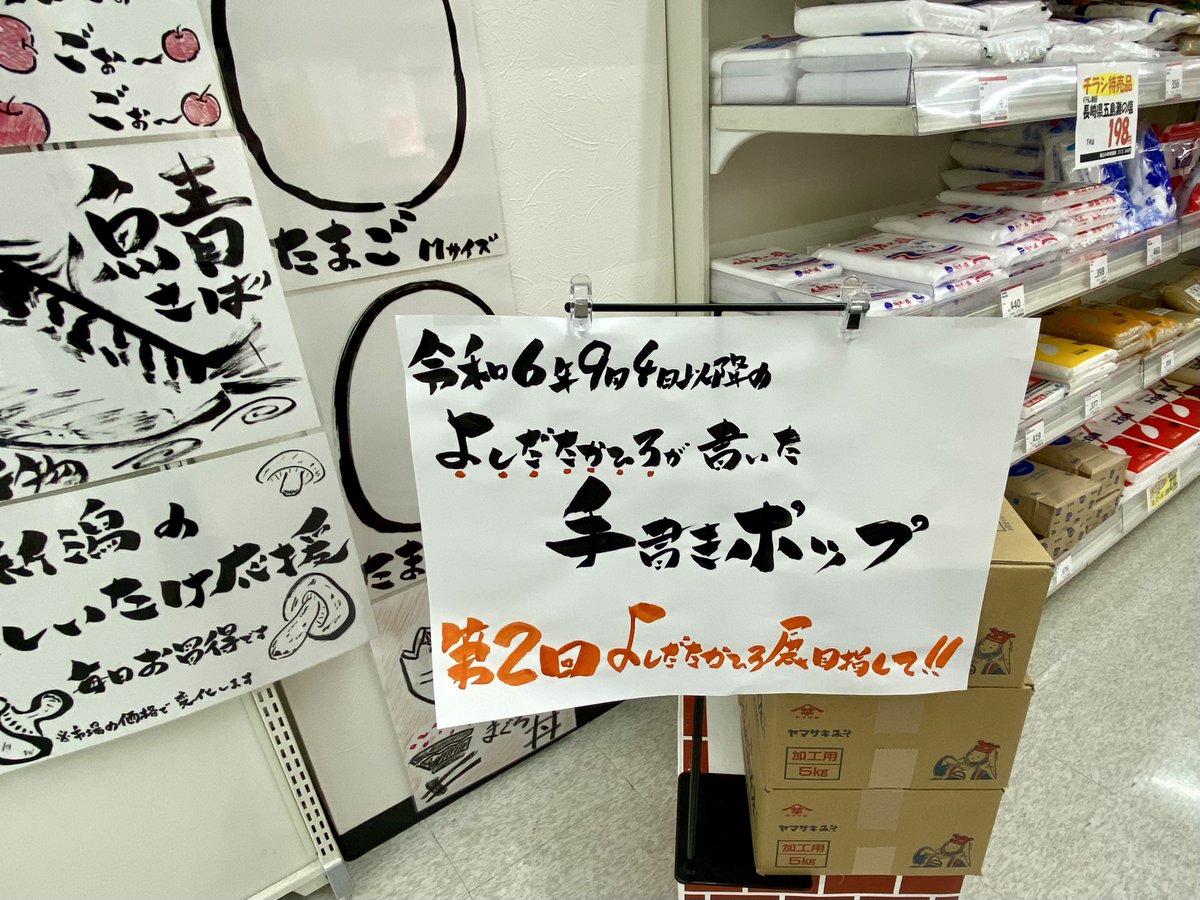 ごぉ〜
ごぉ〜
鯖
さば
たまご Mサイズ
新潟の
しいたけ応援
毎日お買得です
※市場の価格で変化します
たま
まぐろ丼
令和6年9月4日以降の
よしだたかひろが書いた
手書きポップ
第2回よしだたかひろ展目指して!!
チラシ特売品
長崎県五島灘の塩
1kg 198円
398
440
419
377
ヤマサキみそ
加工用
5kg
ヤマサキみそ
加工用
5kg